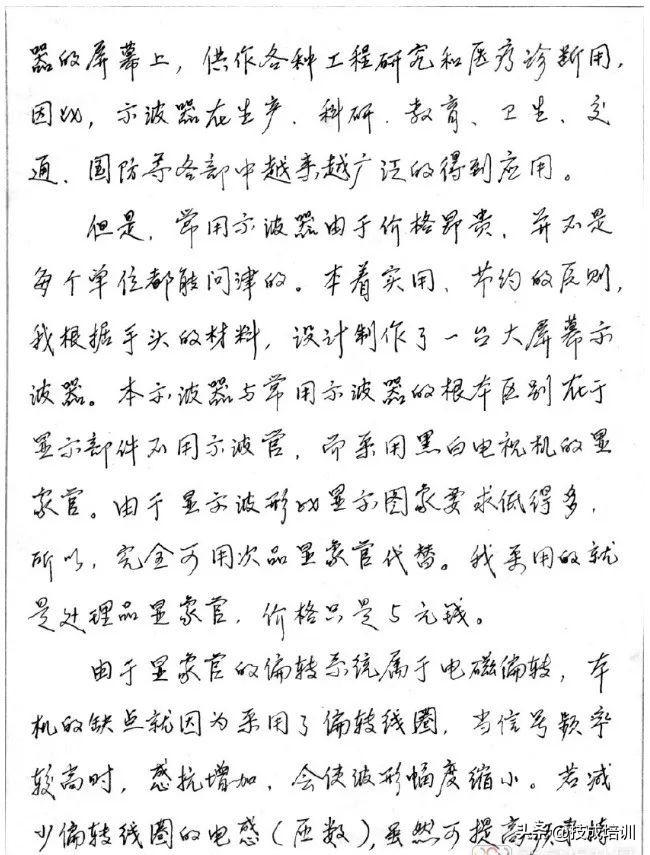 器的屏幕上，供作各种工程研究和医疗诊断用，
因此，示波器在生产、科研、教育、卫生、交
通、国防等各部中越来越广泛的得到应用。
但是，常用示波器由于价格昂贵，并不是
每个单位都能问津的。本着实用、节约的原则，
我根据手头的材料，设计制作了一台大屏幕示
波器。本示波器与常用示波器的根本区别在于
显示部件不用示波管，而采用黑白电视机的显
象管。由于显示波形比显示图象要求低得多，
所以，完全可用次品显象管代替。我采用的就
是处理品显象管，价格只是5元钱。
由于显象管的偏转系统属于电磁偏转，本
机的缺点就因为采用了偏转线圈，当信号频率
较高时，感抗增加，会使波形幅度缩小。若减
少偏转线圈的电感（匝数），虽然可提高频率特
头条@技成培训